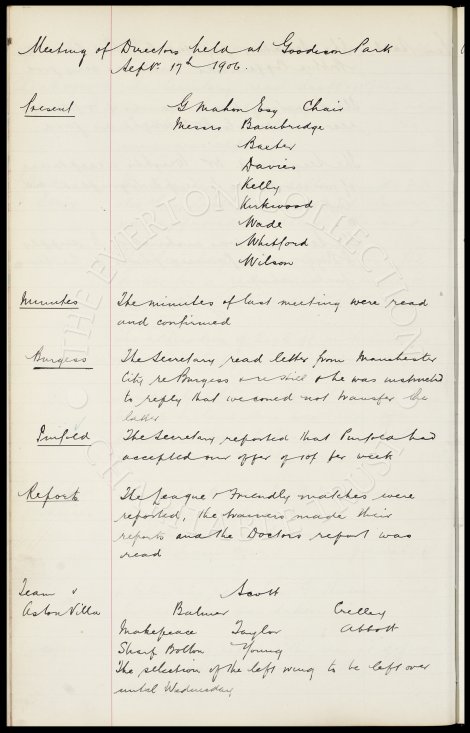 Meeting of Directors held at Goodison Park
Sept. 17th 1906.
Present G Mahon Esq Chair
Messrs Bainbridge
Baxter
Davies
Kelly
Kirkwood
Wade
Whitford
Wilson
Minutes The minutes of last meeting were read
and confirmed
Burgess The Secretary read letter from Manchester
City re Burgess & re & he was instructed
to reply that we could not transfer the
latter
Penfold The Secretary reported that Penfold had
accepted our offer of 10/ per week
Reports The League & Friendly matches were
reported, the trainers made their
reports and the Doctors report was
read
Team v Scott
Aston Villa Balmer Crelley
Makepeace Taylor Abbott
Sharp Bolton Young
The selection of the left wing to be left over
until Wednesday
THE EVERTON COLLECTION
CHARITABLE TRUST